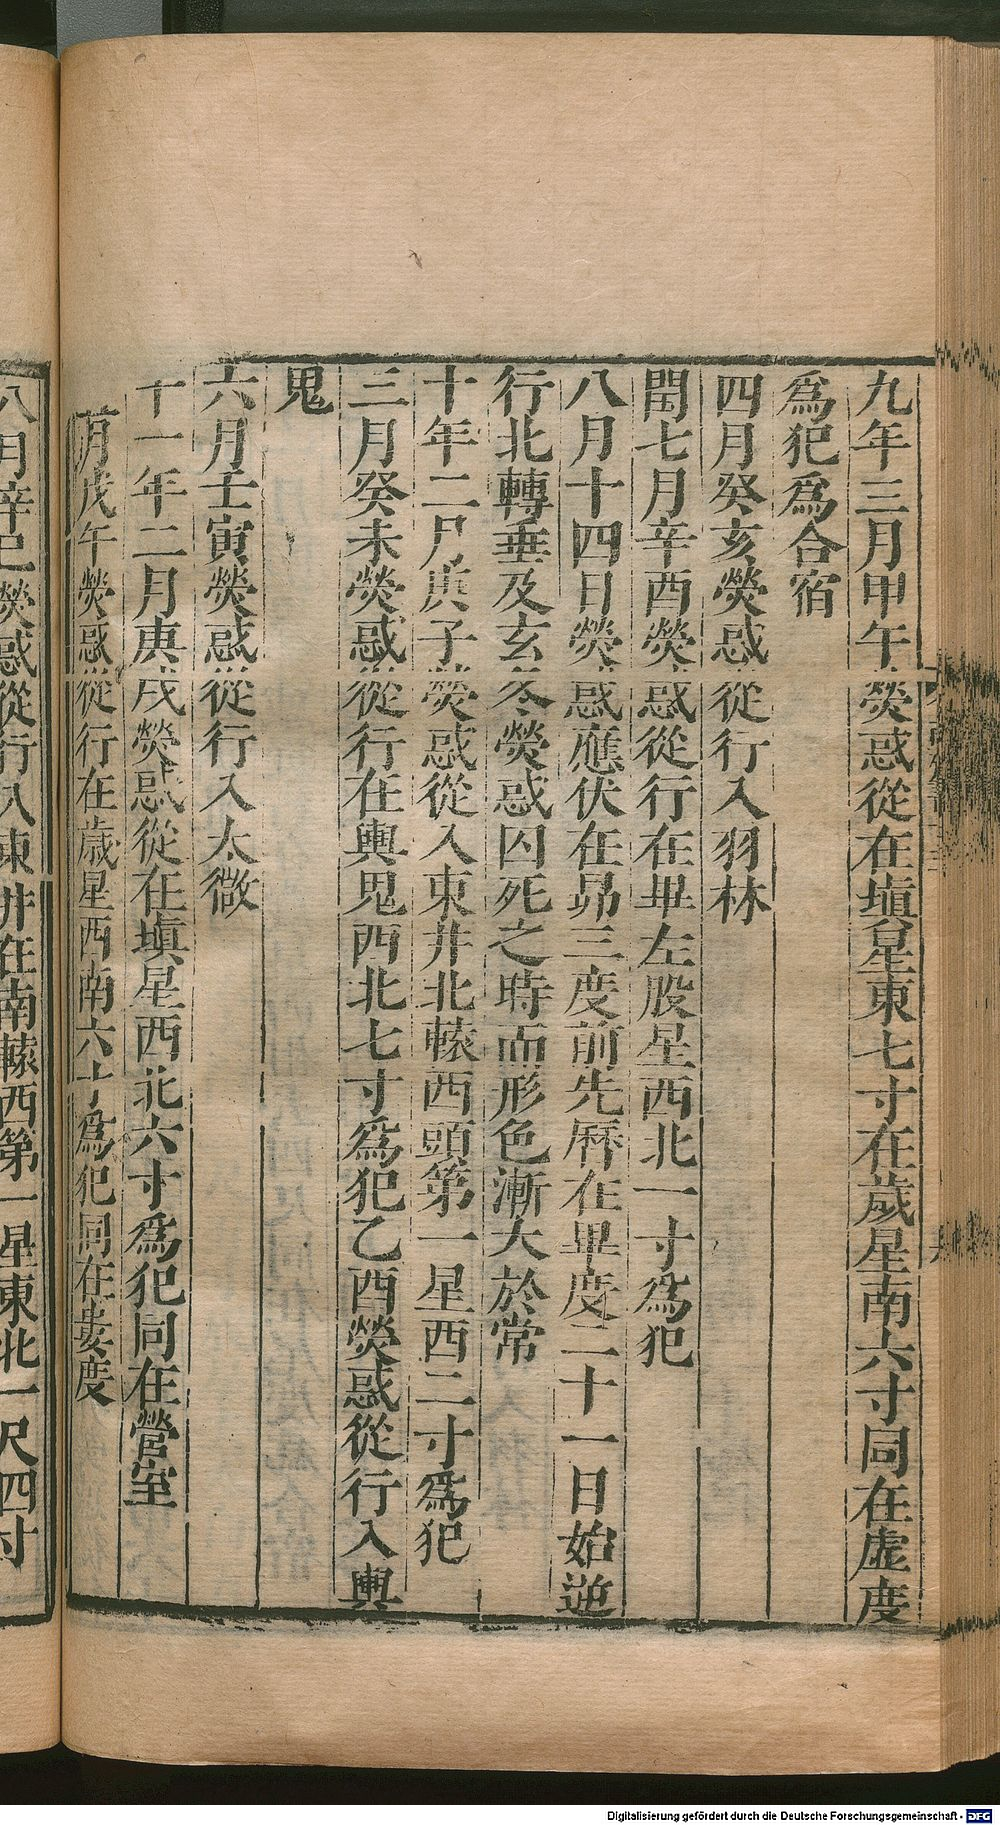 九年三月甲午熒惑從在塡星東七寸在歲星南六寸同在虛度
爲犯爲合宿
四月癸亥熒惑從行入羽林
閏七月辛酉熒惑從行在畢左股星西北一寸爲犯
八月十四日熒惑應伏在昴三度前先曆在畢度二十一日始逆
行北轉垂及玄冬熒惑囚死之時而形色漸大於常
十年二月庚子熒惑從入東井北轅西頭第一星西二寸爲犯
三月癸未熒惑從行在輿鬼西北七寸爲犯乙酉熒惑從行入輿
鬼
六月壬寅熒惑從行入太微
十一年二月庚戌熒惑從在塡星西北六寸爲犯同在營室
月戊午熒惑從行在歲星西南六寸爲犯同在婁度
八月辛巳熒惑從行入東井在南轅西第一星東北一尺四寸
Digitalisierung gefördert durch die Deutsche Forschungsgemeinschaft - DFG